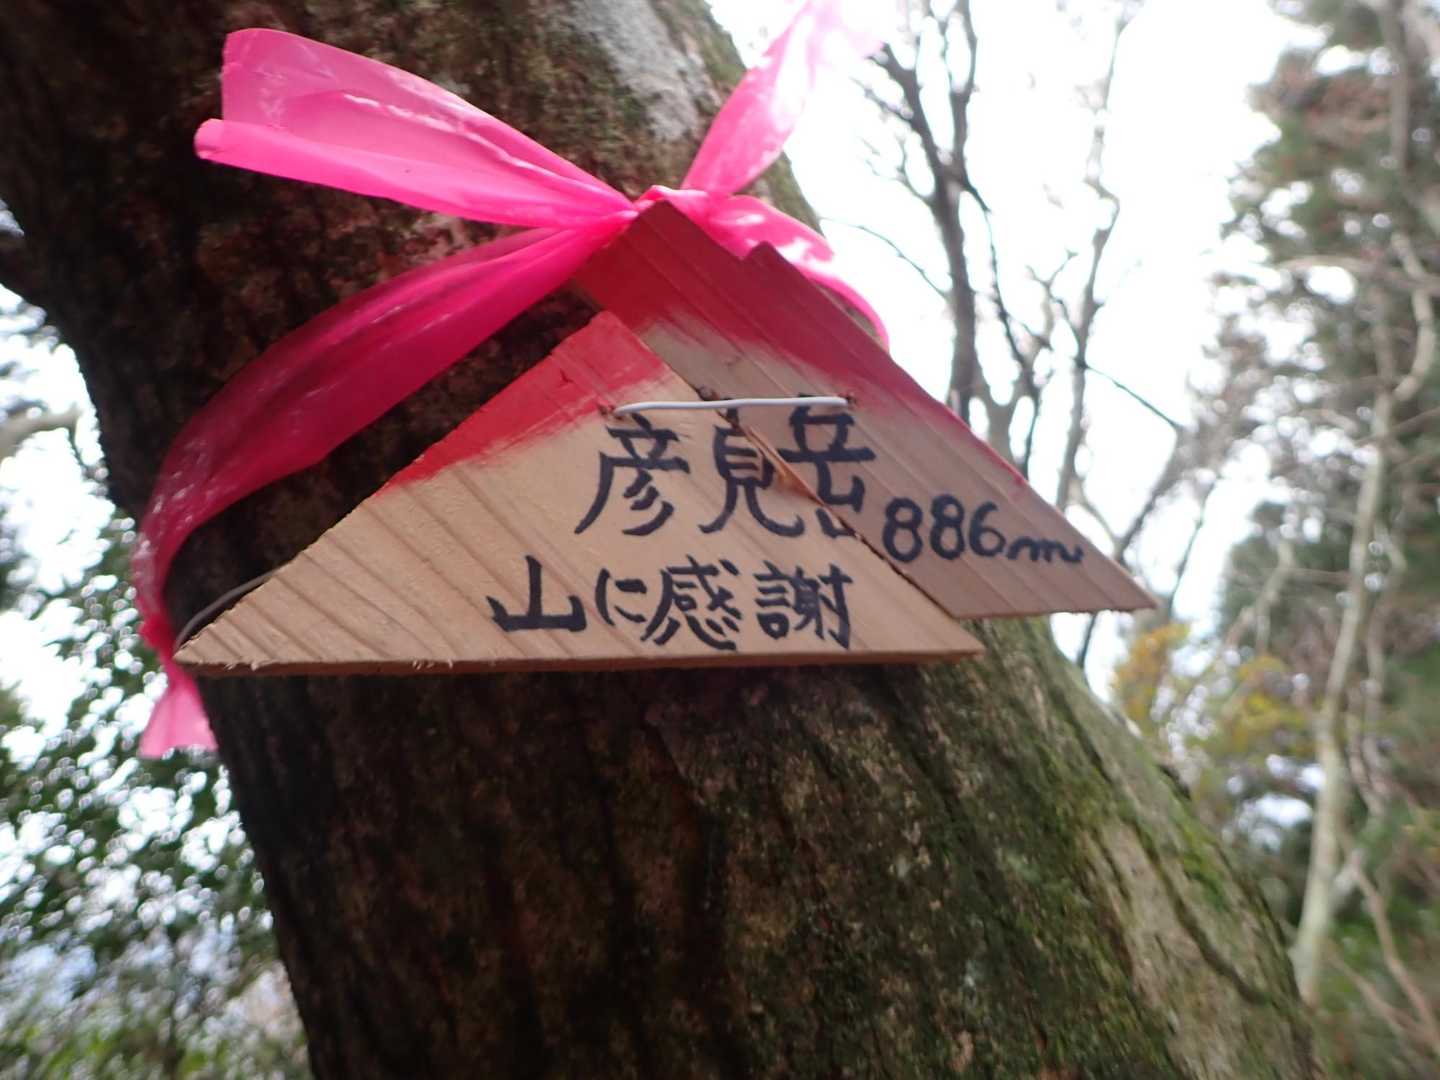 彦見岳 886m
山に感謝